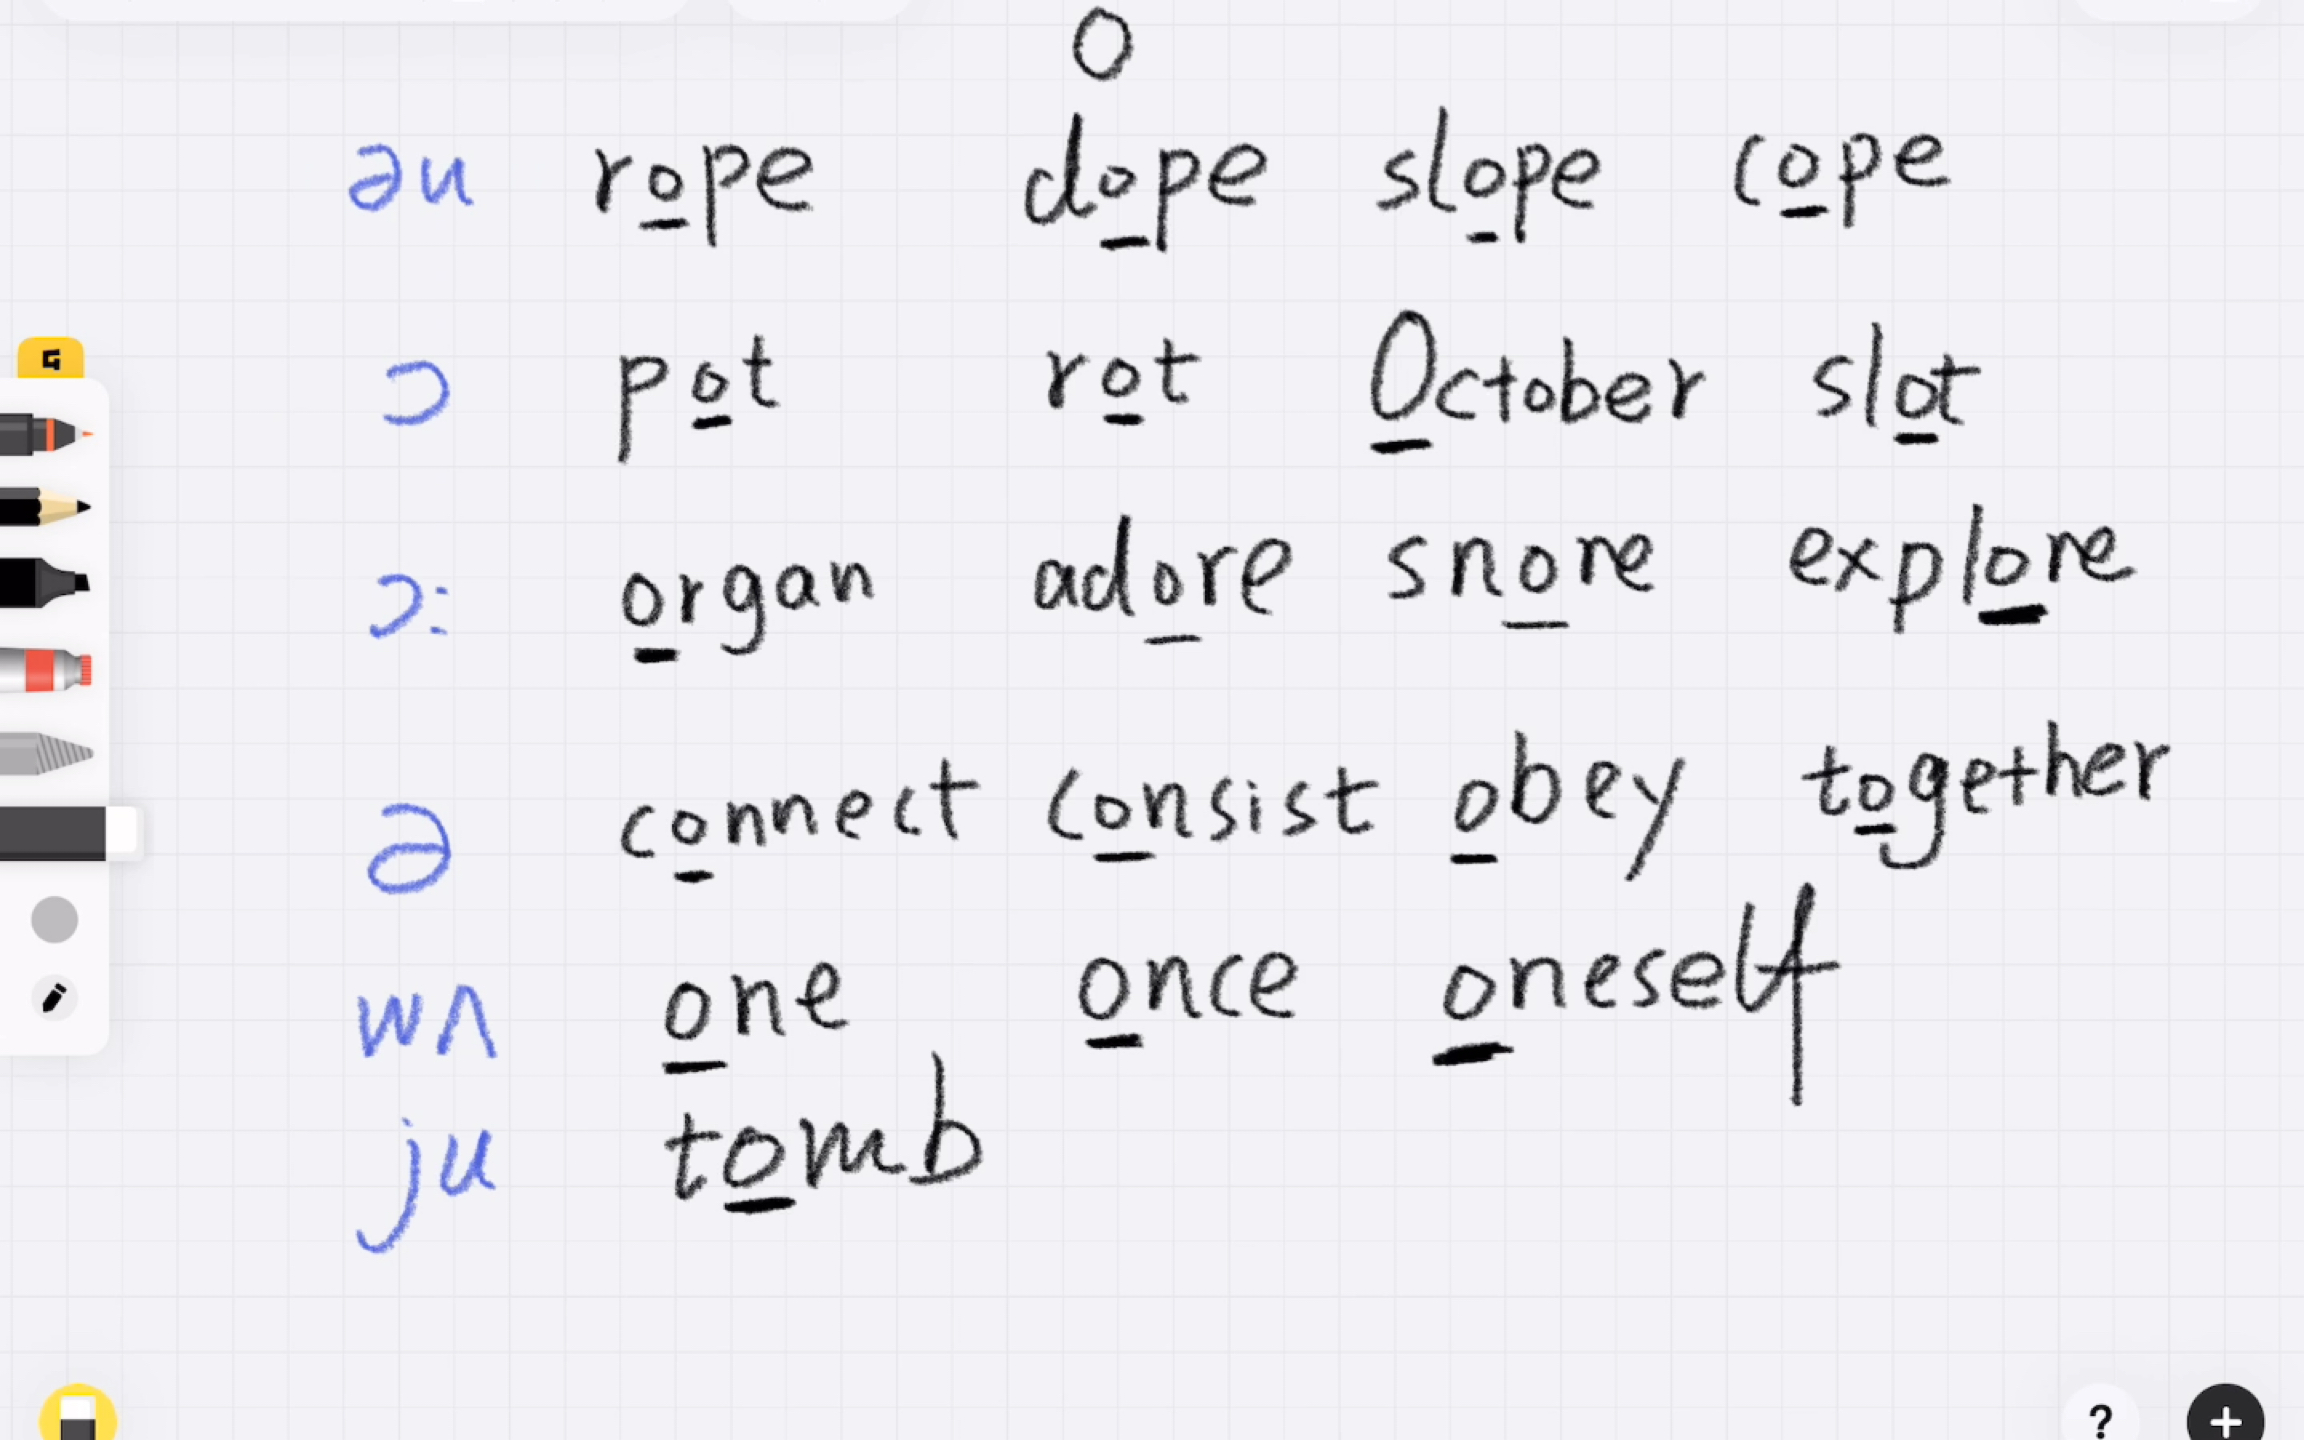 o
əu rope dope slope cope
5
ɔ pot rot October slot
ɔ: organ adore snore explore
ə connect consist obey together
wʌ one once oneself
ju tomb
? +